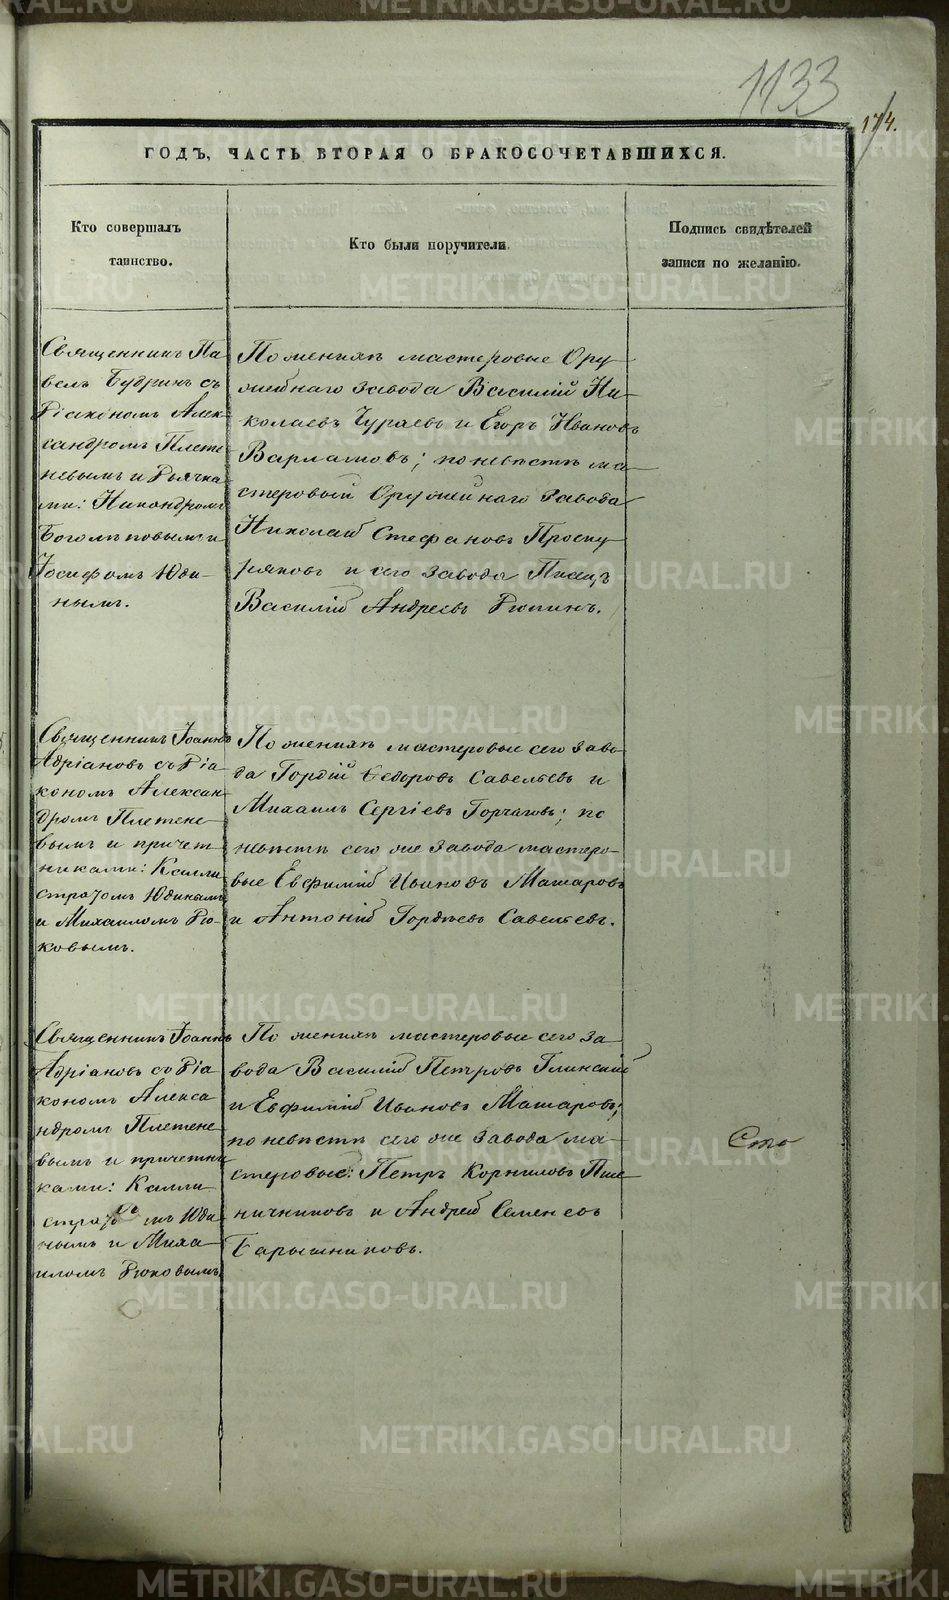 1133
174.
ГОДЪ, ЧАСТЬ ВТОРАЯ О БРАКОСОЧЕТАВШИХСЯ.
Кто совершалъ
таинство.
Кто были поручители.
Подпись свидѣтелей
записи по желанію.
Священникъ Па
велъ Будринъ съ
Діакономъ Алек
сандромъ Плете
невымъ и Дьячка
ми: Никандромъ
Боголѣповымъ и
Іосифомъ Юди-
нымъ.
По женихѣ мастеровые Ору
жейнаго завода Василій Ни-
колаевъ Чураевъ и Егоръ Ивановъ
Варламовъ; по невѣстѣ ма-
стеровой Оружейнаго Завода
Николай Стефановъ Проску
ряковъ и сего завода Писецъ
Василій Андреевъ Рюминъ.
Священникъ Іоаннъ
Адріановъ съ Діа
кономъ Алексан
дромъ Плетене
вымъ и причет
никами: Калли
стратомъ Юдинымъ
и Михаиломъ Рю
ковымъ.
По женихѣ мастеровые сего заво
да Гордій Ѳедоровъ Савельевъ и
Михаилъ Сергіевъ Горчаговъ; по
невѣстѣ сего же завода мастеро-
вые Евфимій Ивановъ Машаровъ
и Антоній Гордѣевъ Савельевъ.
Священникъ Іоаннъ
Адріановъ съ Діа
кономъ Алекса
ндромъ Плетене
вымъ и причетни
ками: Калли
стратомъ Юди
нымъ и Миха
иломъ Рюковымъ.
По женихѣ мастеровые сего за
вода Василій Петровъ Глинскій
и Евфимій Ивановъ Машаровъ;
по невѣстѣ сего же завода ма-
стеровые: Петръ Корниловъ Пше
ничниковъ и Андрей Семеновъ
Барышниковъ.
METRIKI.GASO-URAL.RU